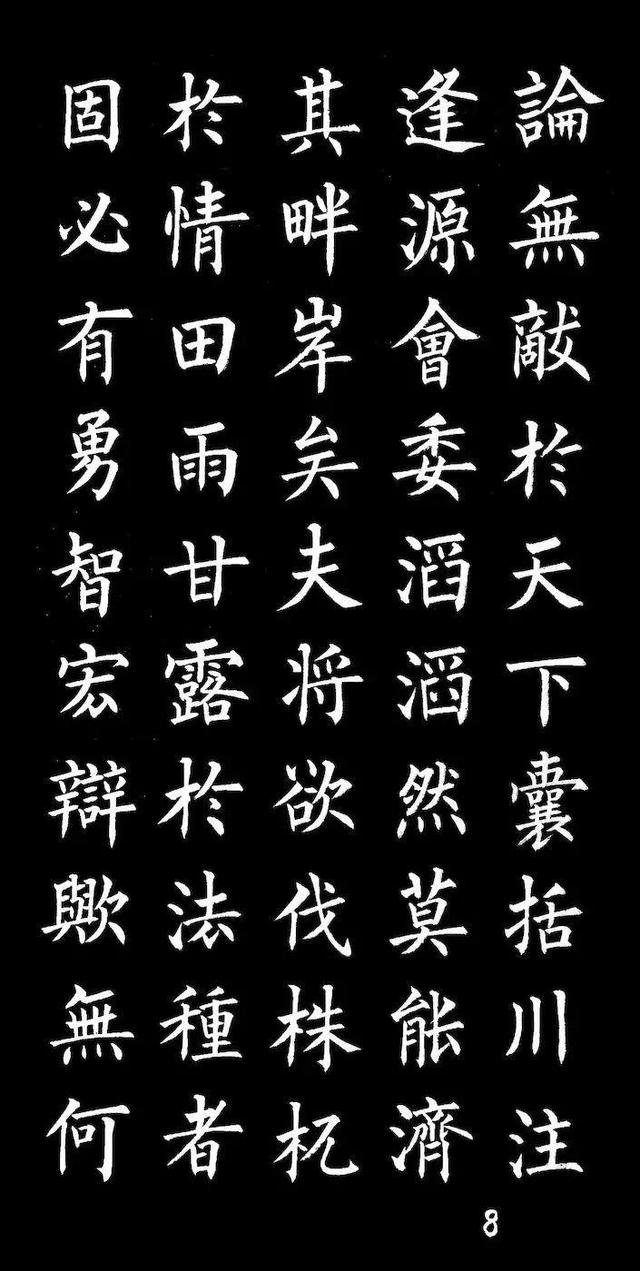 論無敵於天下囊括川注
逢源會委滔滔然莫能濟
其畔岸矣夫將欲伐株杌
於情田雨甘露於法種者
固必有勇智宏辯歟無何
8